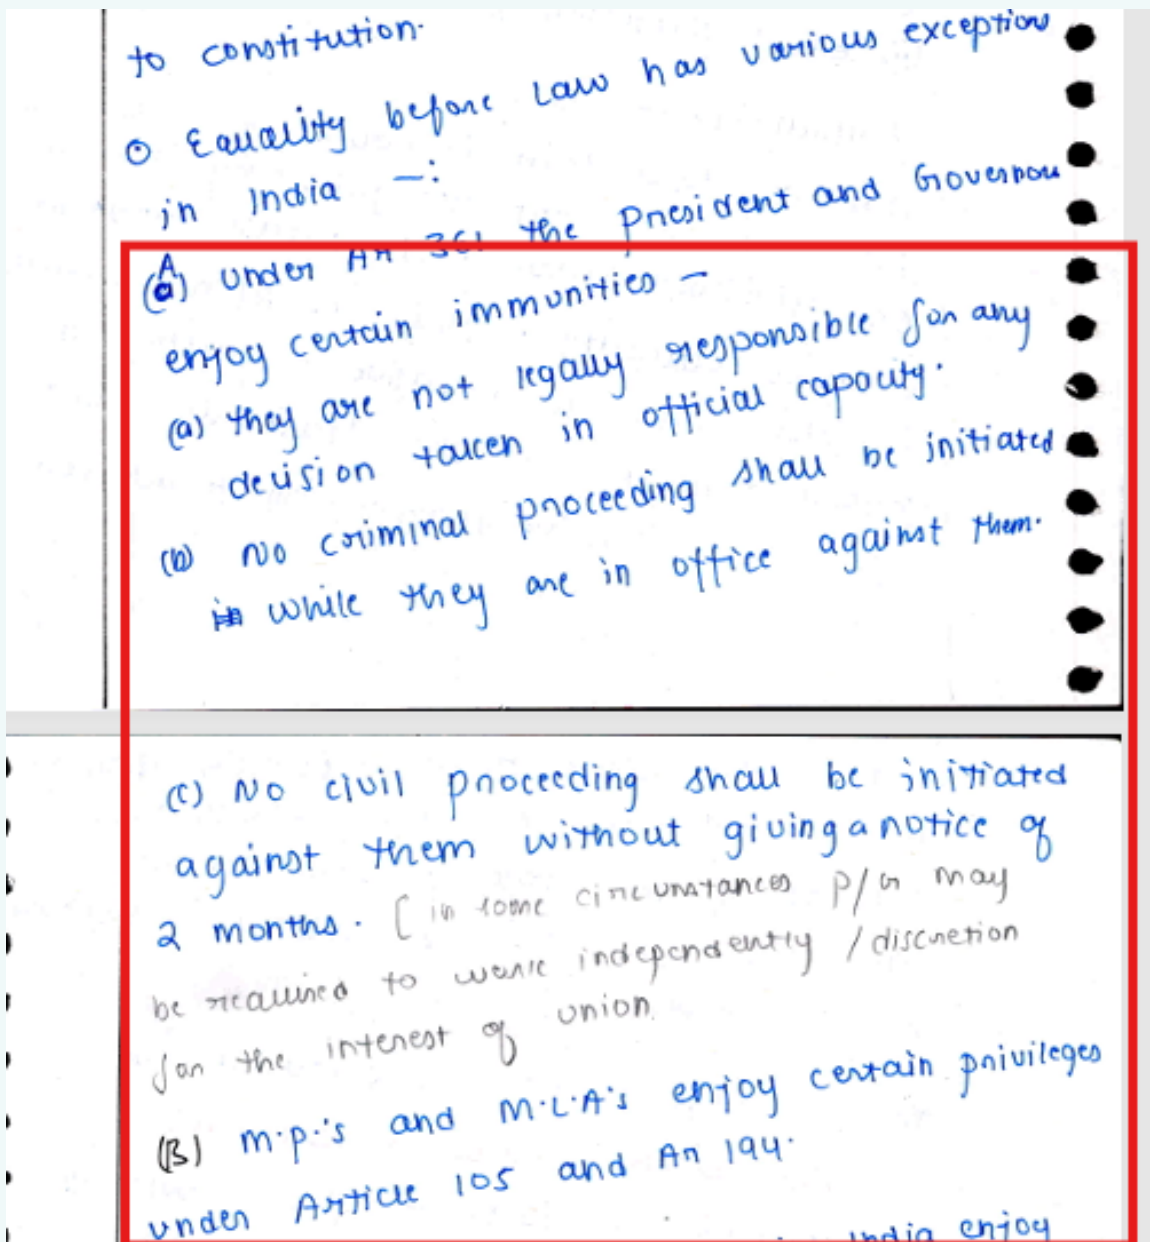 to constitution.
o Equality before Law has various exceptions
in India -:
(A) under Ar 361 the President and Governor
enjoy certain immunities -
(a) they are not legally responsible for any
decision taken in official capacity.
(b) No criminal proceeding shall be initiated
while they are in office against them.
(c) No civil proceeding shall be initiated
against them without giving a notice of
2 months. [in some circumstances P/G may
be required to work independently / discretion
for the interest of union.
(B) M.P.'s and M.L.A's enjoy certain privileges
under Article 105 and Ar 194.
India enjoy